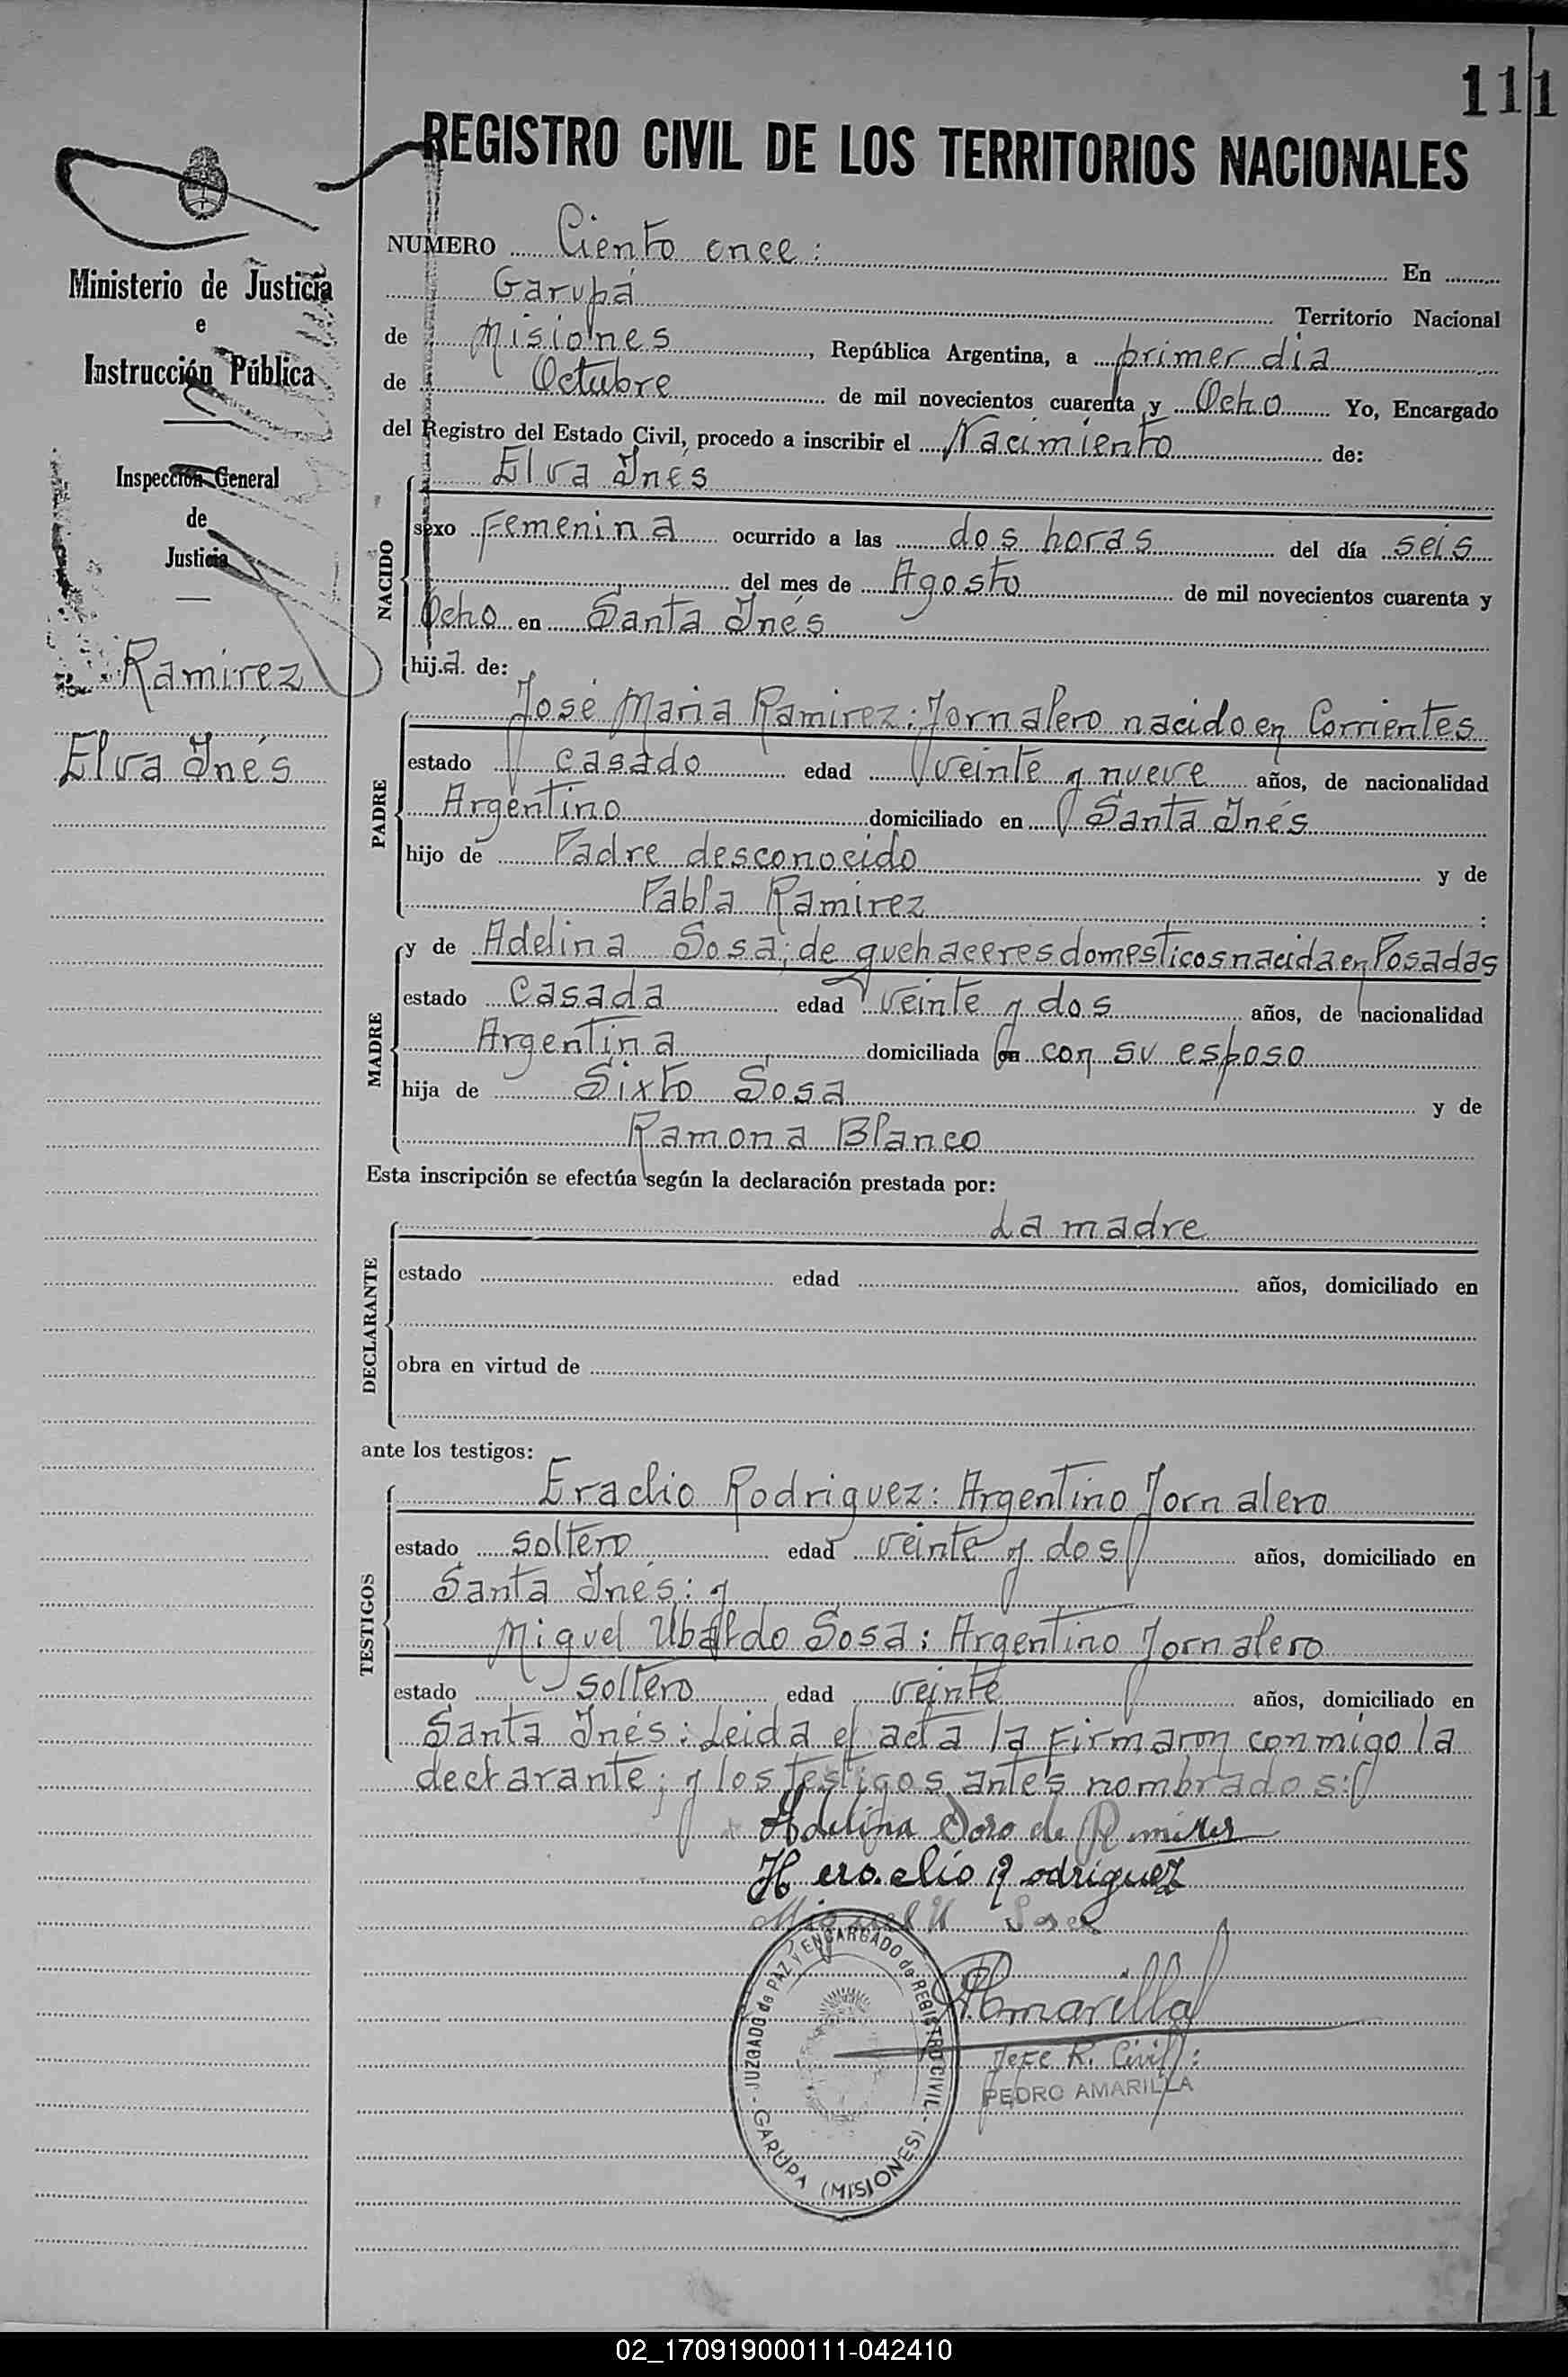 111
REGISTRO CIVIL DE LOS TERRITORIOS NACIONALES
Ministerio de Justicia
e
Instrucción Pública
Inspección General
de
Justicia
Ramirez
Elva Inés
NUMERO Ciento once: En
Garupá Territorio Nacional
de Misiones, República Argentina, a primer dia
de Octubre de mil novecientos cuarenta y Ocho Yo, Encargado
del Registro del Estado Civil, procedo a inscribir el Nacimiento de:
NACIDO
Elva Inés
sexo Femenina ocurrido a las dos horas del día seis
del mes de Agosto de mil novecientos cuarenta y
Ocho en Santa Inés
hija de:
PADRE
José Maria Ramirez: Jornalero nacido en Corrientes
estado casado edad veinte y nueve años, de nacionalidad
Argentino domiciliado en Santa Inés
hijo de Padre desconocido y de
Pabla Ramirez :
MADRE
y de Adelina Sosa; de quehaceres domesticos nacida en Posadas
estado Casada edad veinte y dos años, de nacionalidad
Argentina domiciliada en con su esposo
hija de Sixto Sosa y de
Ramona Blanco
Esta inscripción se efectúa según la declaración prestada por:
DECLARANTE
La madre
estado edad años, domiciliado en
obra en virtud de
ante los testigos:
TESTIGOS
Eraclio Rodriguez: Argentino Jornalero
estado soltero edad veinte y dos años, domiciliado en
Santa Inés: y
Miguel Ubaldo Sosa: Argentino Jornalero
estado soltero edad veinte años, domiciliado en
Santa Inés: Leida el acta la firmaron conmigo la
declarante; y los testigos antes nombrados:
Adelina Soso de Remires
Heraclio Rodriguez
Miguel U Sosa
JUZGADO de PAZ y ENCARGADO de REGISTRO CIVIL
GARUPA (MISIONES)
PAmarilla
Jefe R. Civil:
PEDRO AMARILLA
02_170919000111-042410